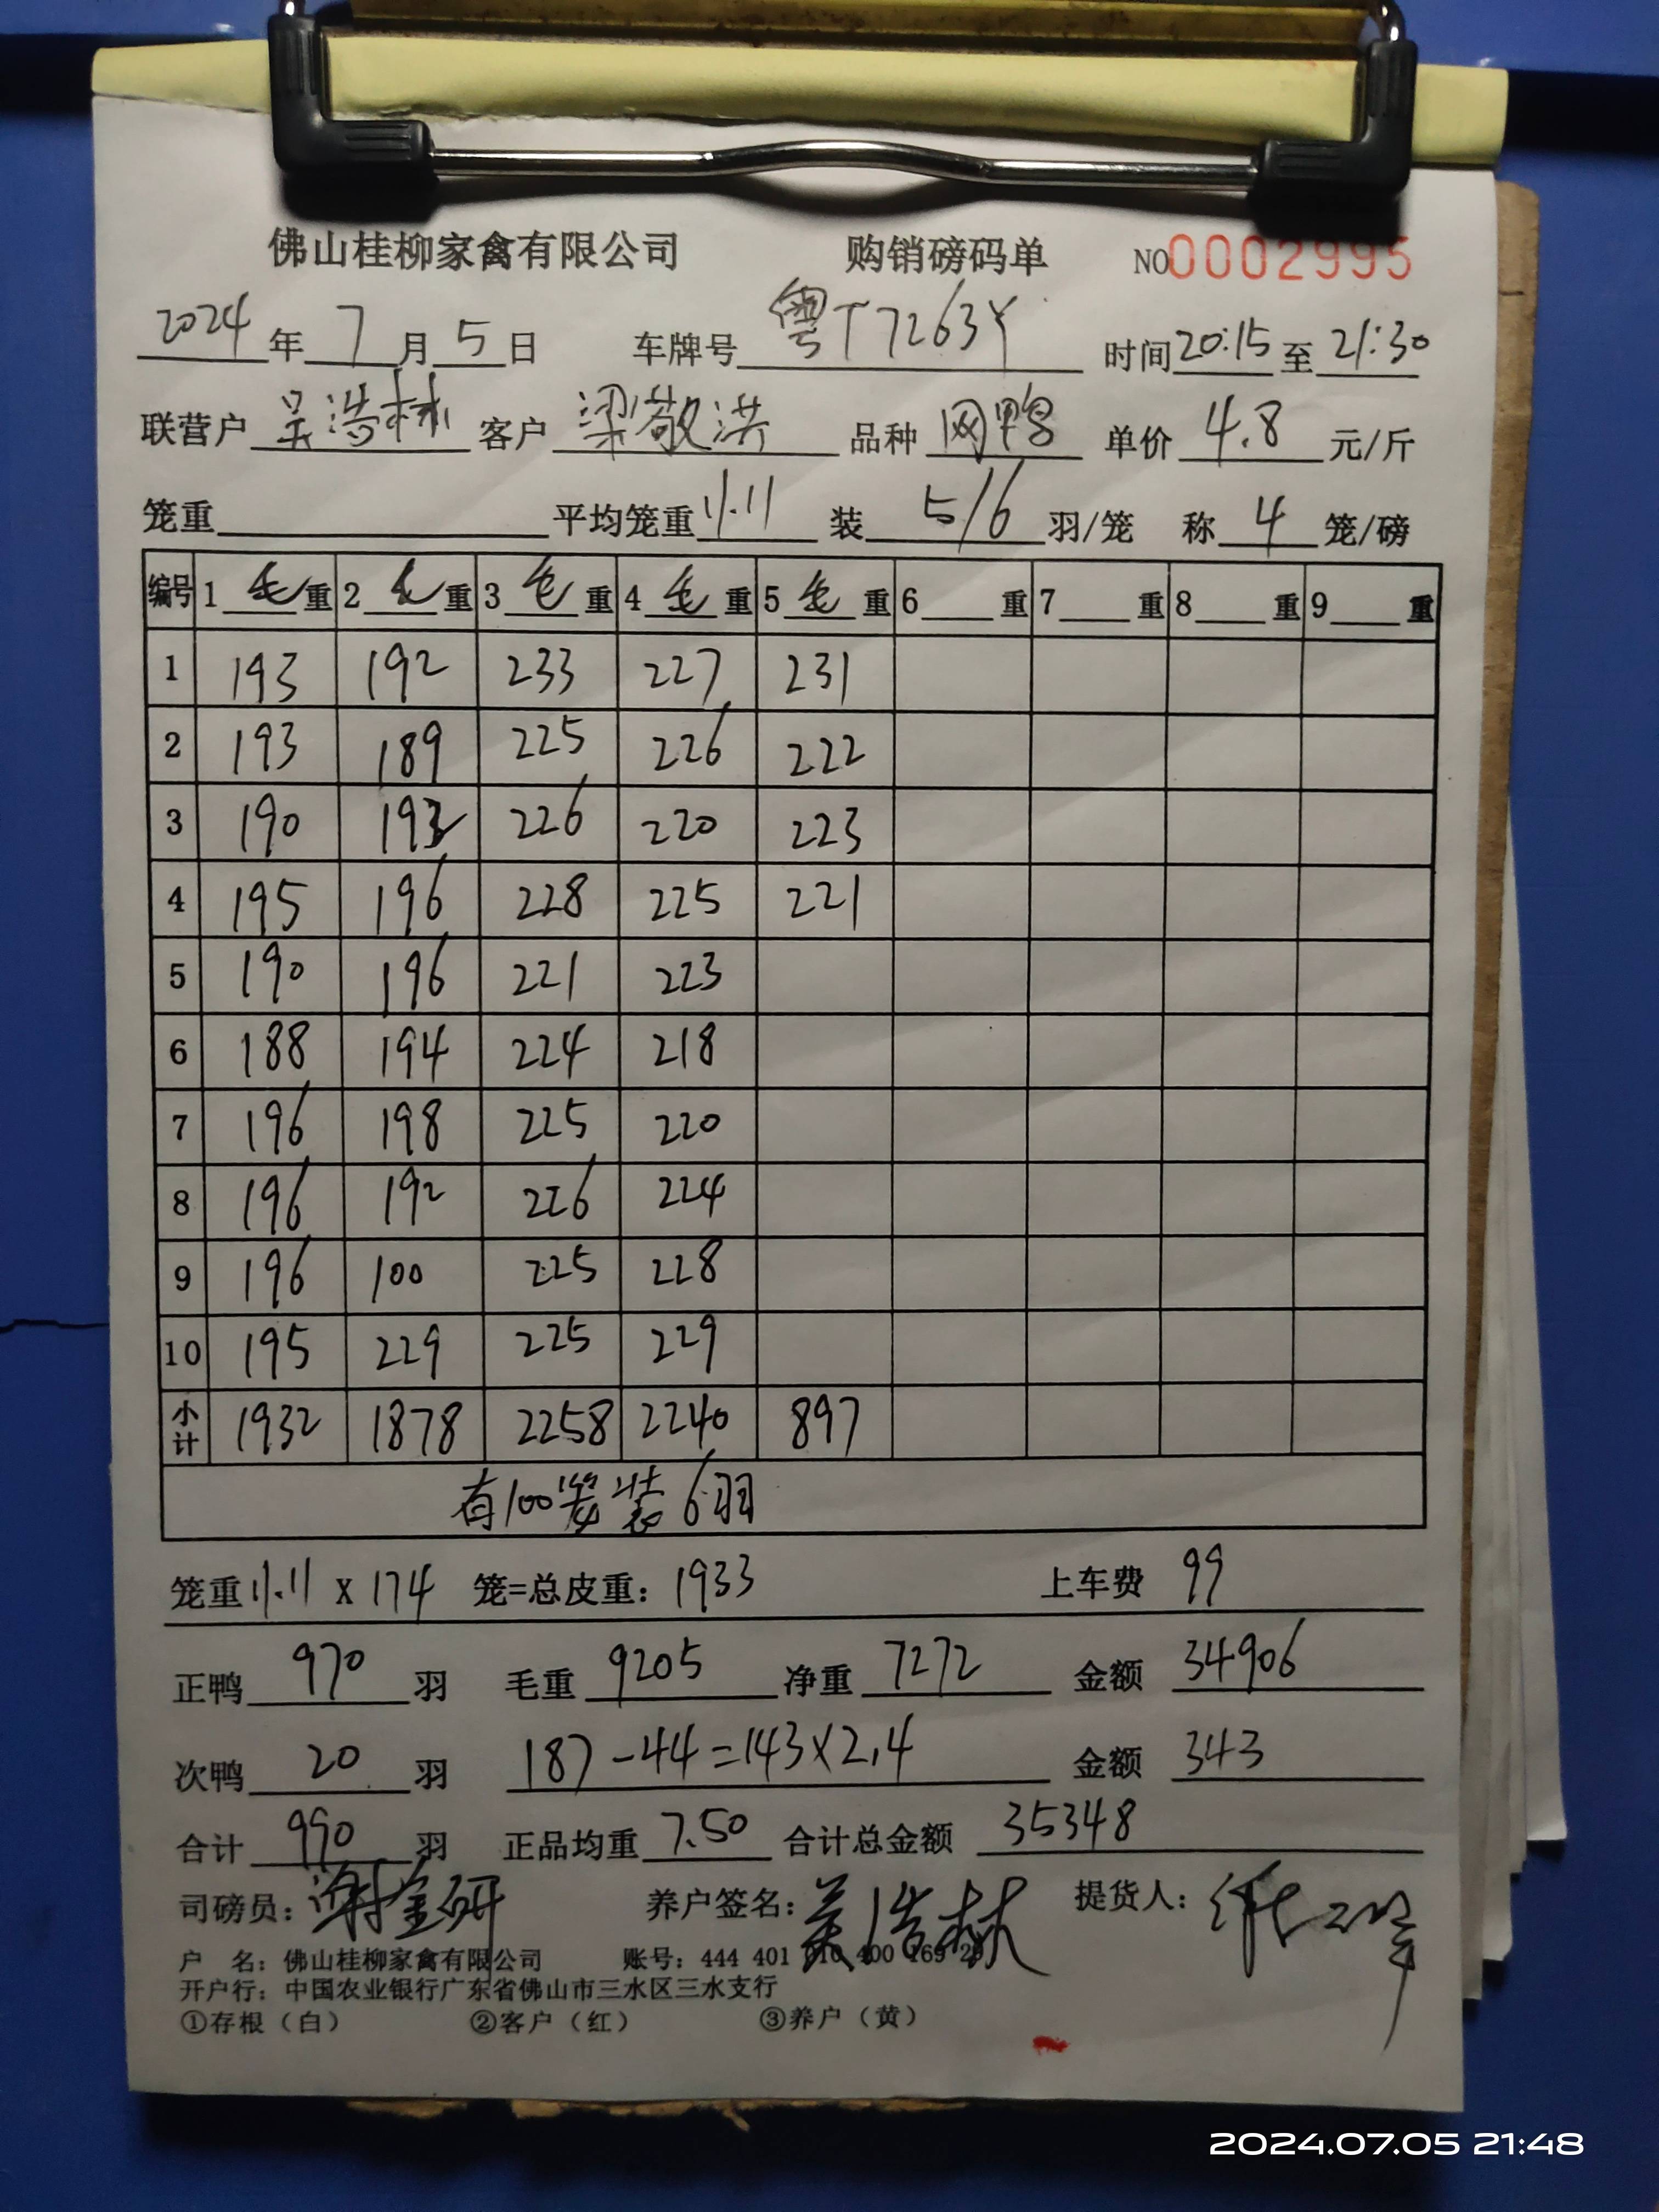 佛山桂柳家禽有限公司 购销磅码单 NO0002995
2024年7月5日 车牌号 粤T7263Y 时间20:15至21:30
联营户 吴浩林 客户 梁敬洪 品种 网鸭 单价 4.8 元/斤
笼重 平均笼重 11.11 装 5/6 羽/笼 称 4 笼/磅
编号 1 毛重 2 毛重 3 毛重 4 毛重 5 毛重 6 重 7 重 8 重 9 重
1 193 192 233 227 231
2 193 189 225 226 222
3 190 192 226 220 223
4 195 196 228 225 221
5 190 196 221 223
6 188 194 224 218
7 196 198 225 220
8 196 192 226 224
9 196 100 225 228
10 195 229 225 229
小计 1932 1878 2258 2240 897
有100笼装6羽
笼重11.11 X 174 笼=总皮重：1933 上车费 99
正鸭 970 羽 毛重 9205 净重 7272 金额 34906
次鸭 20 羽 187-44=143×2.4 金额 343
合计 990 羽 正品均重 7.50 合计总金额 35348
司磅员：谢金研 养户签名：吴浩林 提货人：
户 名：佛山桂柳家禽有限公司 账号：444 401
开户行：中国农业银行广东省佛山市三水区三水支行
①存根（白） ②客户（红） ③养户（黄）
2024.07.05 21:48